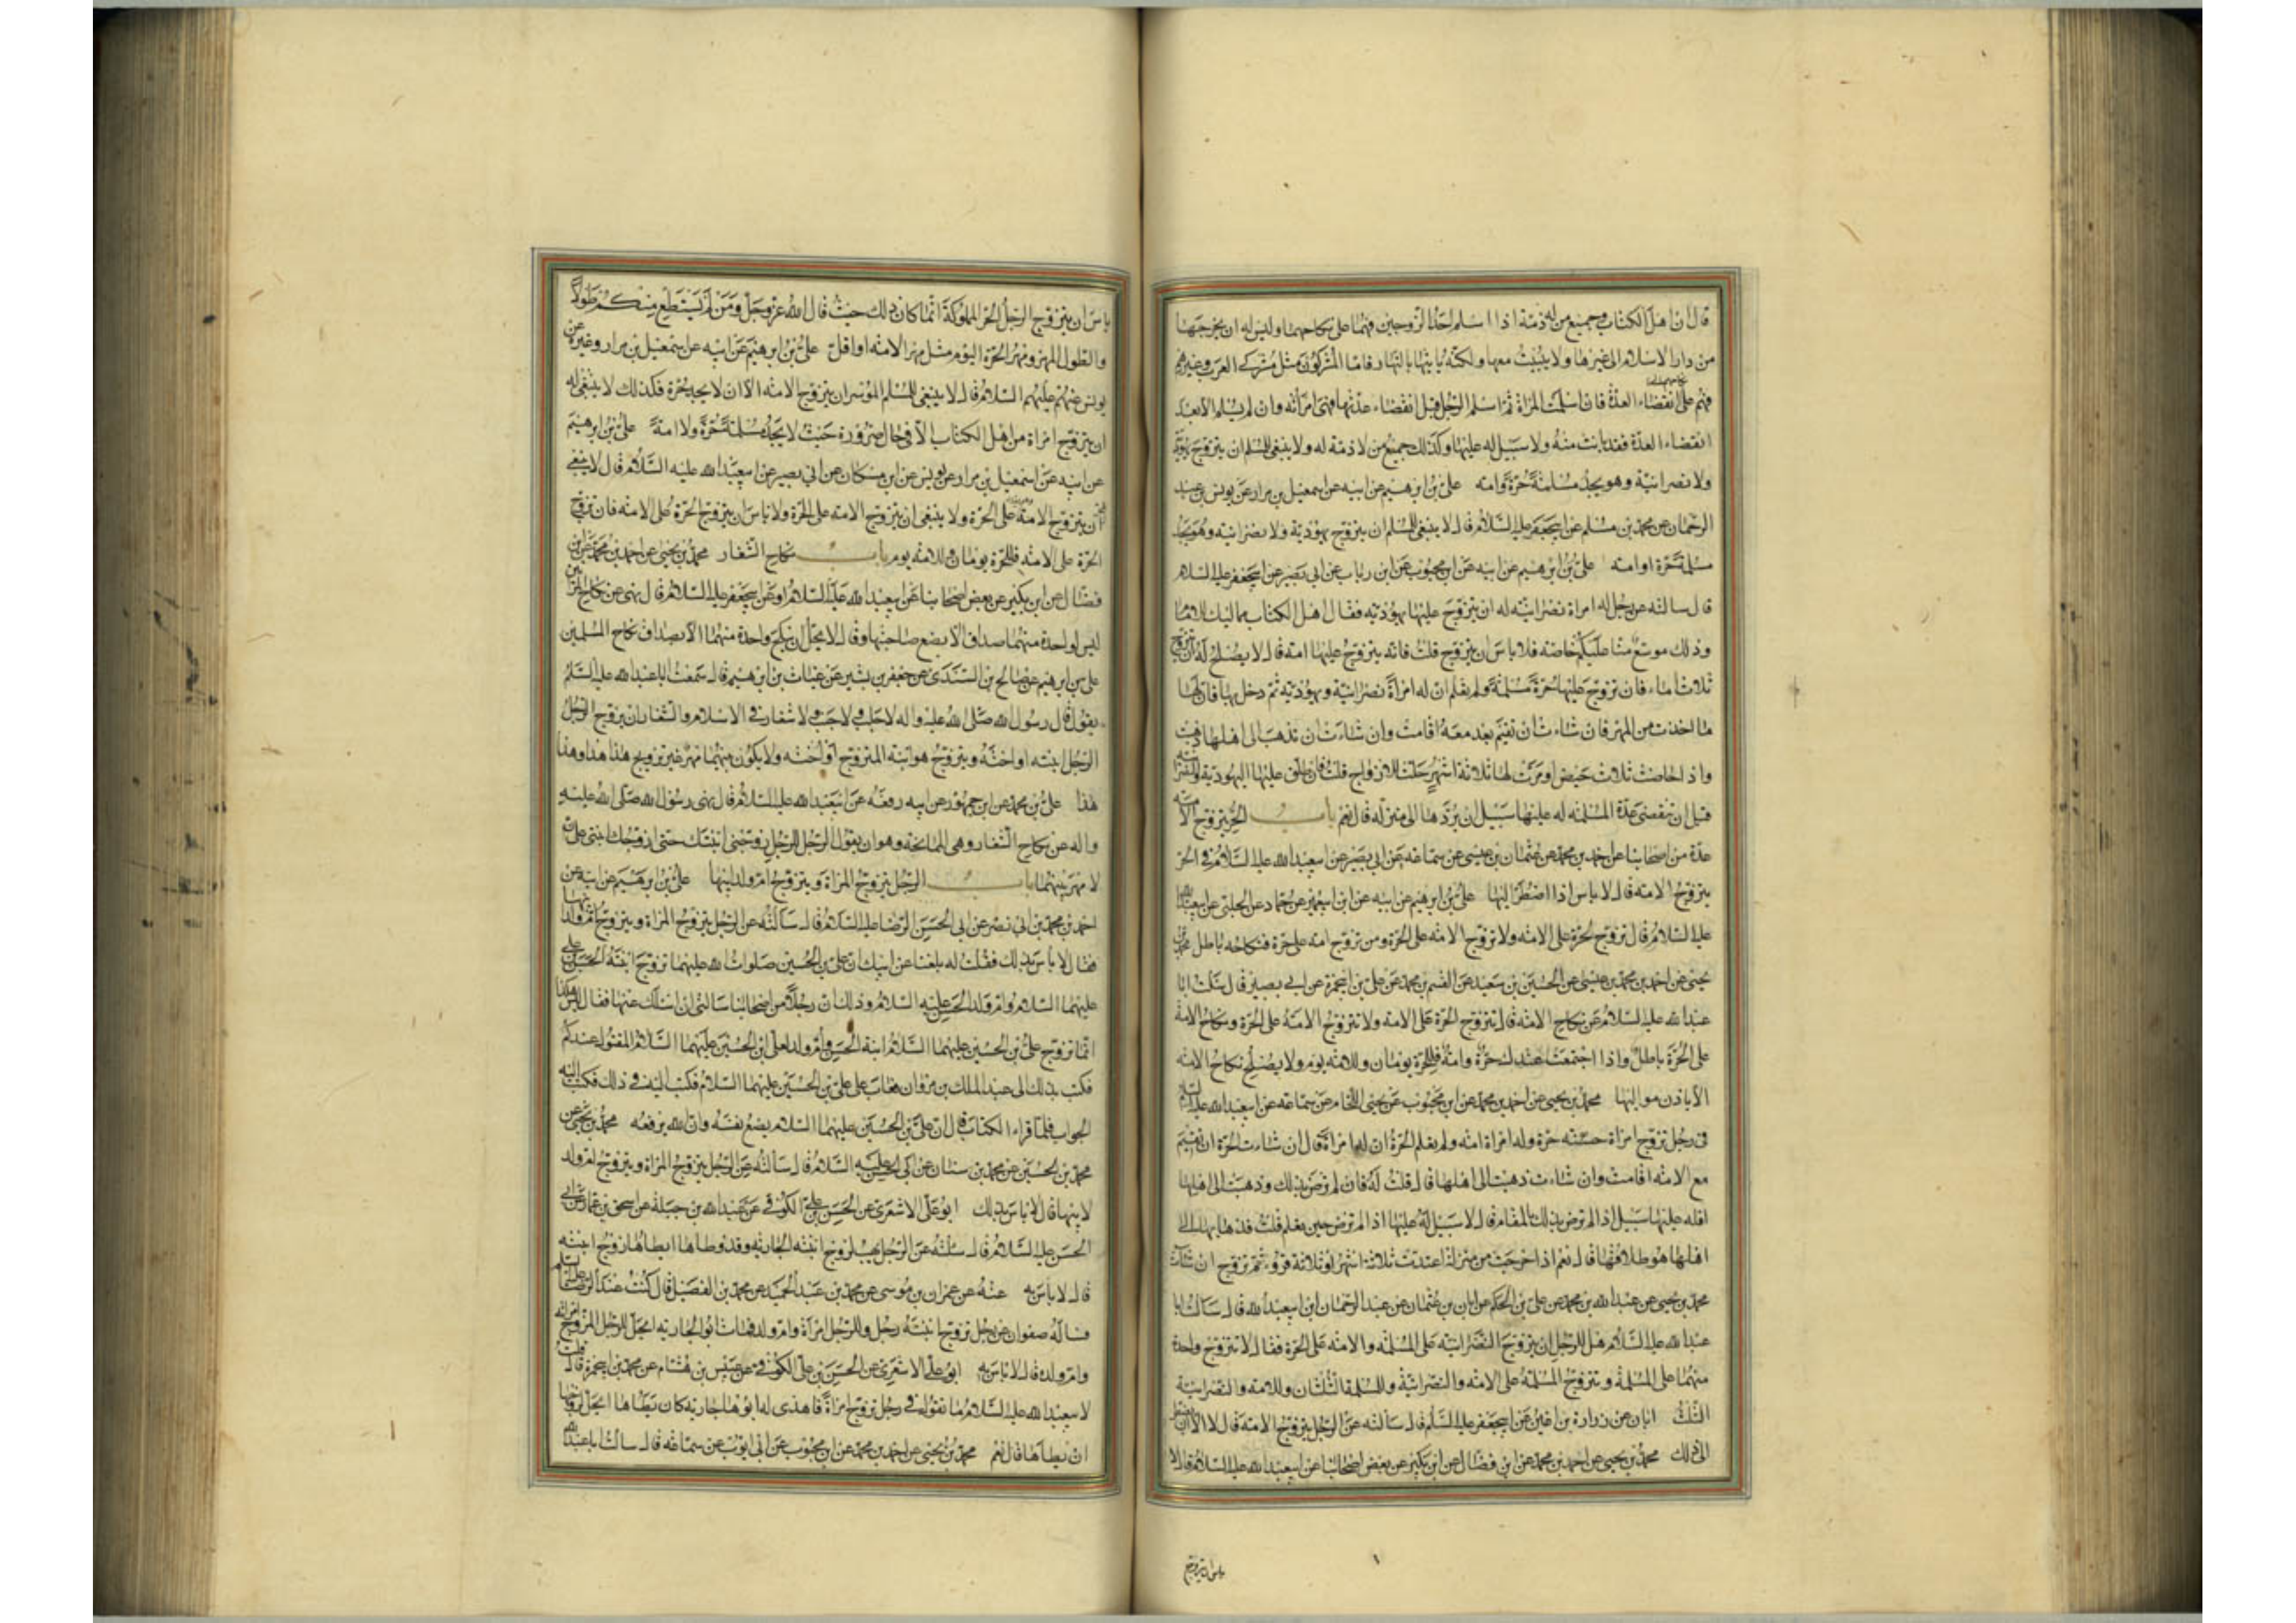 قال ان اهل الكتاب وجميع من له ذمة اذا اسلم احد الزوجين فهما على نكاحهما وليس له ان يخرجها
من دار الاسلام الى غيرها ولا يبيت معها ولكنه ياتيها بالنهار فاما المشركون مثل مشركي العرب وغيرهم
فهم على انقضاء العدة فان اسلمت المراة ثم اسلم الرجل قبل انقضاء عدتها فهي امراته وان لم يسلم الا بعد
انقضاء العدة فقد بانت منه ولا سبيل له عليها وكذلك جميع من لا ذمة له ولا ينبغي للمسلم ان يتزوج يهودية
ولا نصرانية وهو يجد مسلمة حرة او امة علي بن ابرهيم عن ابيه عن اسمعيل بن مرار عن يونس بن عبد
الرحمان عن محمد بن مسلم عن ابي جعفر عليه السلام قال لا ينبغي للمسلم ان يتزوج يهودية ولا نصرانية وهو يجد
مسلمة حرة او امة علي بن ابرهيم عن ابيه عن ابن محبوب عن ابن رياب عن ابي بصير عن ابي جعفر عليه السلام
قال سالته عن رجل له امراة نصرانية له ان يتزوج عليها يهودية فقال اهل الكتاب مماليك للامام
وذلك موسع منا عليكم خاصة فلا باس ان يتزوج قلت فانه يتزوج عليها امة قال لا يصلح له ان يتزوج
ثلاث اماء فان تزوج عليها حرة مسلمة ولم تعلم ان له امراة نصرانية ويهودية ثم دخل بها فان لها
ما اخذت من المهر فان شاءت ان تقيم بعد معه اقامت وان شاءت ان تذهب الى اهلها ذهبت
واذا حاضت ثلاث حيض او مرت لها ثلاثة اشهر حلت للازواج قلت فان طلق عليها اليهودية والنصرانية
قبل ان تنقضي عدة المسلمة له عليها سبيل ان يردها الى منزله قال نعم باب الحر يتزوج الامة
عدة من اصحابنا عن احمد بن محمد عن عثمان بن عيسى عن سماعة عن ابي بصير عن ابي عبد الله عليه السلام في الحر
يتزوج الامة قال لا باس اذا اضطر اليها علي بن ابرهيم عن ابيه عن ابن ابي عمير عن حماد عن الحلبي عن ابي عبد الله
عليه السلام قال تزوج الحرة على الامة ولا تزوج الامة على الحرة ومن تزوج امة على حرة فنكاحه باطل محمد بن
يحيى عن احمد بن محمد بن عيسى عن الحسين بن سعيد عن القسم بن محمد عن علي بن ابي حمزة عن ابي بصير قال سالت ابا
عبد الله عليه السلام عن نكاح الامة قال يتزوج الحرة على الامة ولا تتزوج الامة على الحرة ونكاح الامة
على الحرة باطل واذا اجتمعت عندك حرة وامة فللحرة يومان وللامة يوم ولا يصلح نكاح الامة
الا باذن مواليها محمد بن يحيى عن احمد بن محمد عن ابن محبوب عن يحيى اللحام عن سماعة عن ابي عبد الله عليه السلام
في رجل تزوج امراة حرة وله امراة امة ولم تعلم الحرة ان له امراة قال ان شاءت الحرة ان تقيم
مع الامة اقامت وان شاءت ذهبت الى اهلها قال قلت له فان لم ترض بذلك وذهبت الى اهلها
افله عليها سبيل اذا لم ترض بذلك بالمقام قال لا سبيل له عليها اذا لم ترض حين تعلم قلت فذهابها الى
اهلها هو طلاقها قال نعم اذا خرجت من منزله اعتدت ثلاثة اشهر او ثلاثة قروء ثم تزوج ان شاءت
محمد بن يحيى عن عبد الله بن محمد عن علي بن الحكم عن ابان بن عثمان عن عبد الرحمان ابن ابي عبد الله قال سالت ابا
عبد الله عليه السلام هل للرجل ان يتزوج النصرانية على المسلمة والامة على الحرة فقال لا تتزوج واحدة
منهما على المسلمة وتتزوج المسلمة على الامة والنصرانية وللمسلمة الثلثان وللامة والنصرانية
الثلث ابان عن زرارة بن اعين عن ابي جعفر عليه السلام قال سالته عن الرجل يتزوج الامة قال لا الا ان يضطر
الى ذلك محمد بن يحيى عن احمد بن محمد عن ابن فضال عن ابن بكير عن بعض اصحابنا عن ابي عبد الله عليه السلام قال لا
باس ان يتزوج
باس ان يتزوج الرجل الحر المملوكة انما كان ذلك حيث قال الله عز وجل ومن لم يستطع منكم طولا
والطول المهر ومهر الحرة اليوم مثل مهر الامة او اقل علي بن ابرهيم عن ابيه عن اسمعيل بن مرار وغيره عن
يونس عنهم عليهم السلام قال لا ينبغي للمسلم الموسر ان يتزوج الامة الا ان لا يجد حرة فكذلك لا ينبغي له
ان يتزوج امراة من اهل الكتاب الا في حال ضرورة حيث لا يجد مسلمة حرة ولا امة علي بن ابرهيم
عن ابيه عن اسمعيل بن مرار عن يونس عن ابن مسكان عن ابي بصير عن ابي عبد الله عليه السلام قال لا ينبغي
ان يتزوج الامة على الحرة ولا ينبغي ان يتزوج الامة على الحرة ولا باس ان يتزوج الحرة على الامة فان تزوج
الحرة على الامة فللحرة يومان وللامة يوم باب نكاح الشغار محمد بن يحيى عن احمد بن محمد عن ابن
فضال عن ابن بكير عن بعض اصحابنا عن ابي عبد الله عليه السلام او عن ابي جعفر عليه السلام قال نهى عن نكاح المراتين
ليس لواحدة منهما صداق الا بضع صاحبتها وقال لا يحل ان ينكح واحدة منهما الا بصداق نكاح المسلمين
علي بن ابرهيم عن صالح بن السندي عن جعفر بن بشير عن غياث بن ابرهيم قال سمعت ابا عبد الله عليه السلم
يقول قال رسول الله صلى الله عليه واله لا جلب ولا جنب ولا شغار في الاسلام والشغار ان يزوج الرجل
الرجل ابنته او اخته ويتزوج هو ابنة المتزوج او اخته ولا يكون بينهما مهر غير تزويج هذا هذا وهذا
هذا علي بن محمد عن ابن جمهور عن ابيه رفعه عن ابي عبد الله عليه السلام قال نهى رسول الله صلى الله عليه
واله عن نكاح الشغار وهي الممانحة وهو ان يقول الرجل للرجل زوجني ابنتك حتى ازوجك ابنتي على ان
لا مهر بينهما باب الرجل يتزوج المراة ويتزوج ام ولد ابيها علي بن ابرهيم عن ابيه عن
احمد بن محمد بن ابي نصر عن ابي الحسن الرضا عليه السلام قال سالته عن الرجل يتزوج المراة ويتزوج ام ولد ابيها
فقال لا باس بذلك فقلت له بلغنا عن ابيك ان علي بن الحسين صلوات الله عليهما تزوج ابنة الحسن بن علي
عليهما السلام وام ولد الحسن عليه السلام وذلك ان رجلا من اصحابنا سالني ان اسالك عنها فقال ليس هكذا
انما تزوج علي بن الحسين عليهما السلام ابنة الحسن وام ولد لعلي ابن الحسين عليهما السلام المقتول عندكم
فكتب بذلك الى عبد الملك بن مروان فعاب على علي بن الحسين عليهما السلام فكتب اليه في ذلك فكتب اليه
الجواب فلما قراء الكتاب قال ان علي بن الحسين عليهما السلام يضع نفسه وان الله يرفعه محمد بن يحيى عن
محمد بن الحسين عن محمد بن سنان عن ابي الحسن عليه السلام قال سالته عن الرجل يتزوج المراة ويتزوج ام ولد
لابيها قال لا باس بذلك ابو علي الاشعري عن الحسن بن علي الكوفي عن عبيد الله بن جبلة عن اسحق بن عمار عن ابي
الحسن عليه السلام قال سئلته عن الرجل يهب لزوج ابنته الجارية وقد وطاها ايطاها زوج ابنته
قال لا باس به عنه عن عمران بن موسى عن محمد بن عبد الحميد عن محمد بن الفضيل قال كنت عند الرضا عليه السلم
فساله صفوان عن رجل تزوج ابنته رجل وللرجل امراة وام ولد فمات ابو الجارية ايحل للرجل المزوج امراته
وام ولده قال لا باس به ابو علي الاشعري عن الحسن بن علي الكوفي عن عبيس بن هشام عن محمد بن ابي حمزة قال قلت
لابي عبد الله عليه السلام ما تقول في رجل تزوج امراة فاهدى له ابوها جارية كان يطاها ايحل لزوجها
ان يطاها قال نعم محمد بن يحيى عن احمد بن محمد عن ابن محبوب عن ابي ايوب عن سماعة قال سالت ابا عبد الله